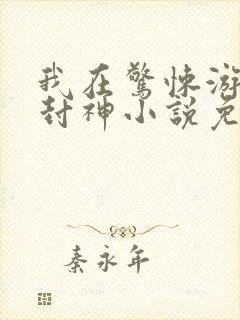 我在驚悚游
封神小説免
秦永年